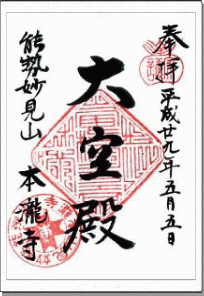 奉拝 平成廿九年五月五日
大空殿
能勢妙見山 本瀧寺